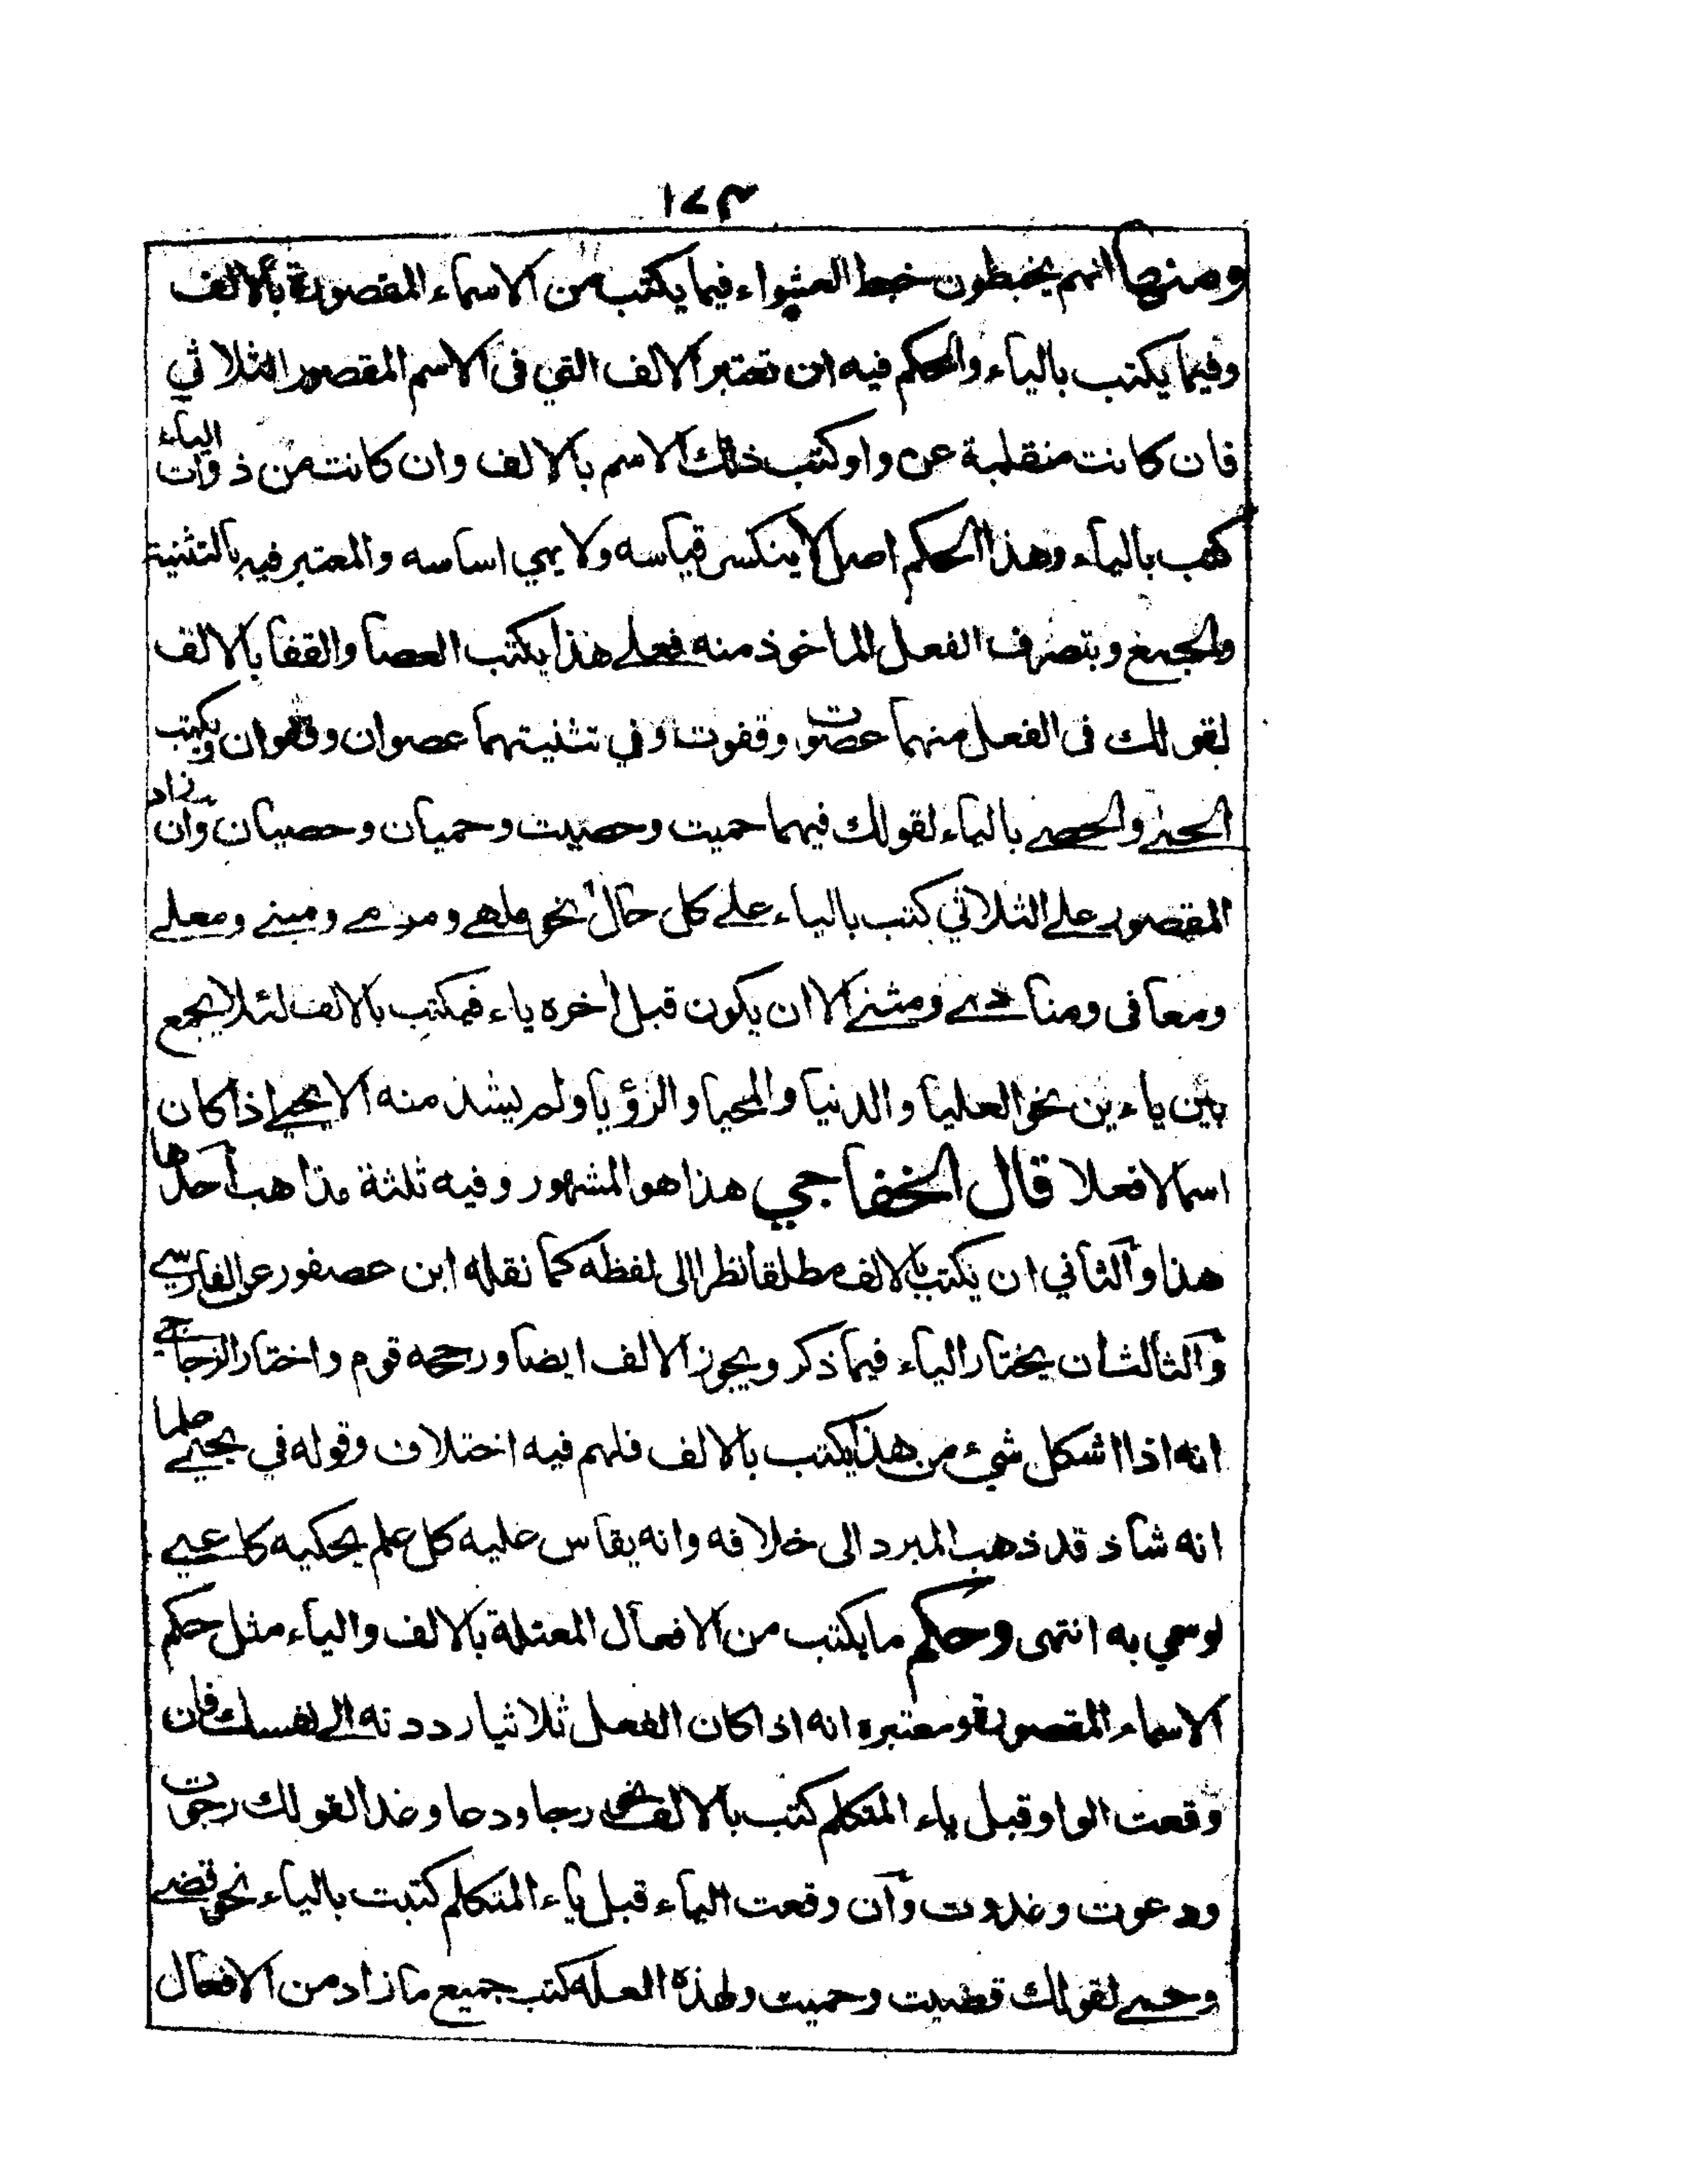 ١٧٣
ومنها انهم يخبطون خبط العشواء فيما يكتب من الاسماء المقصورة بالالف
وفيما يكتب بالياء والحكم فيه ان تعتبر الالف التي فى الاسم المقصور الثلاثي
فان كانت منقلبة عن واو كتب ذلك الاسم بالالف وان كانت من ذوات الياء
كتب بالياء وهذا الحكم اصل لا ينكسر قياسه ولا يهي اساسه والمعتبر فيه بالتثنية
والجمع وبتصرف الفعل الماخوذ منه فعلے هذا يكتب العصا والقفا بالالف
لقولك فى الفعل منهما عصوت وقفوت وفي تثنيتهما عصوان وقفوان ويكتب
الحمے والحصے بالياء لقولك فيهما حميت وحصيت وحميان وحصيان وآن زاد
المقصور علے الثلاثي كتب بالياء علے كل حال نحو ملهے ومرمے ومبنے ومعلے
ومعافى ومنادے ومثنے الا ان يكون قبل أخره ياء فيكتب بالالف لئلا يجمع
بين ياءين نحو العليا والدنيا والمحيا والرؤيا ولم يشذ منه الا يحيے اذا كان
اسما لا فعلا قال الخفاجي هذا هو المشهور وفيه ثلثة مذاهب أحدها
هذا وآلثاني ان يكتب بالالف مطلقا نظرا الى لفظه كما نقله ابن عصفور عن الفارسے
وآلثالث ان يختار الياء فيما ذكر ويجوز الالف ايضا ورجحه قوم واختار الزجاجے
انه اذا اشكل شيء من هذا يكتب بالالف فلهم فيه اختلاف وقوله في يحيے علما
انه شاذ قد ذهب المبرد الى خلافه وانه يقاس عليه كل علم يحكيه كاعيے
لو سمي به انتهى وحكم ما يكتب من الافعال المعتلة بالالف والياء مثل حكم
الاسماء المقصورة ومعتبره انه اذا كان الفعل ثلاثيا رددته الى نفسك فان
وقعت الواو قبل ياء المتكلم كتب بالالف نحو رجا ودعا وغدا لقولك رجوت
ودعوت وغدوت وآن وقعت الياء قبل ياء المتكلم كتبت بالياء نحو قضے
وحمے لقولك قضيت وحميت ولهذه العلة كتب جميع ما زاد من الافعال